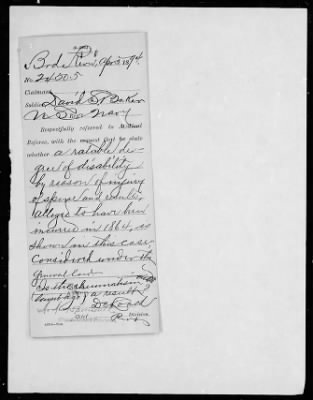 Brd. Rev., Apr 5, 1894.
No. 24505
Claimant
Soldier David S. Baker
U.S. Navy
Respectfully referred to Medical
Referee, with the request that he state
whether a ratable de-
gree of disability
by reason of injury
of spine and results,
alleged to have been
incurred in 1864, is
shown in this case
considered under the
general law
Is the rheumatism
a result?
Division.